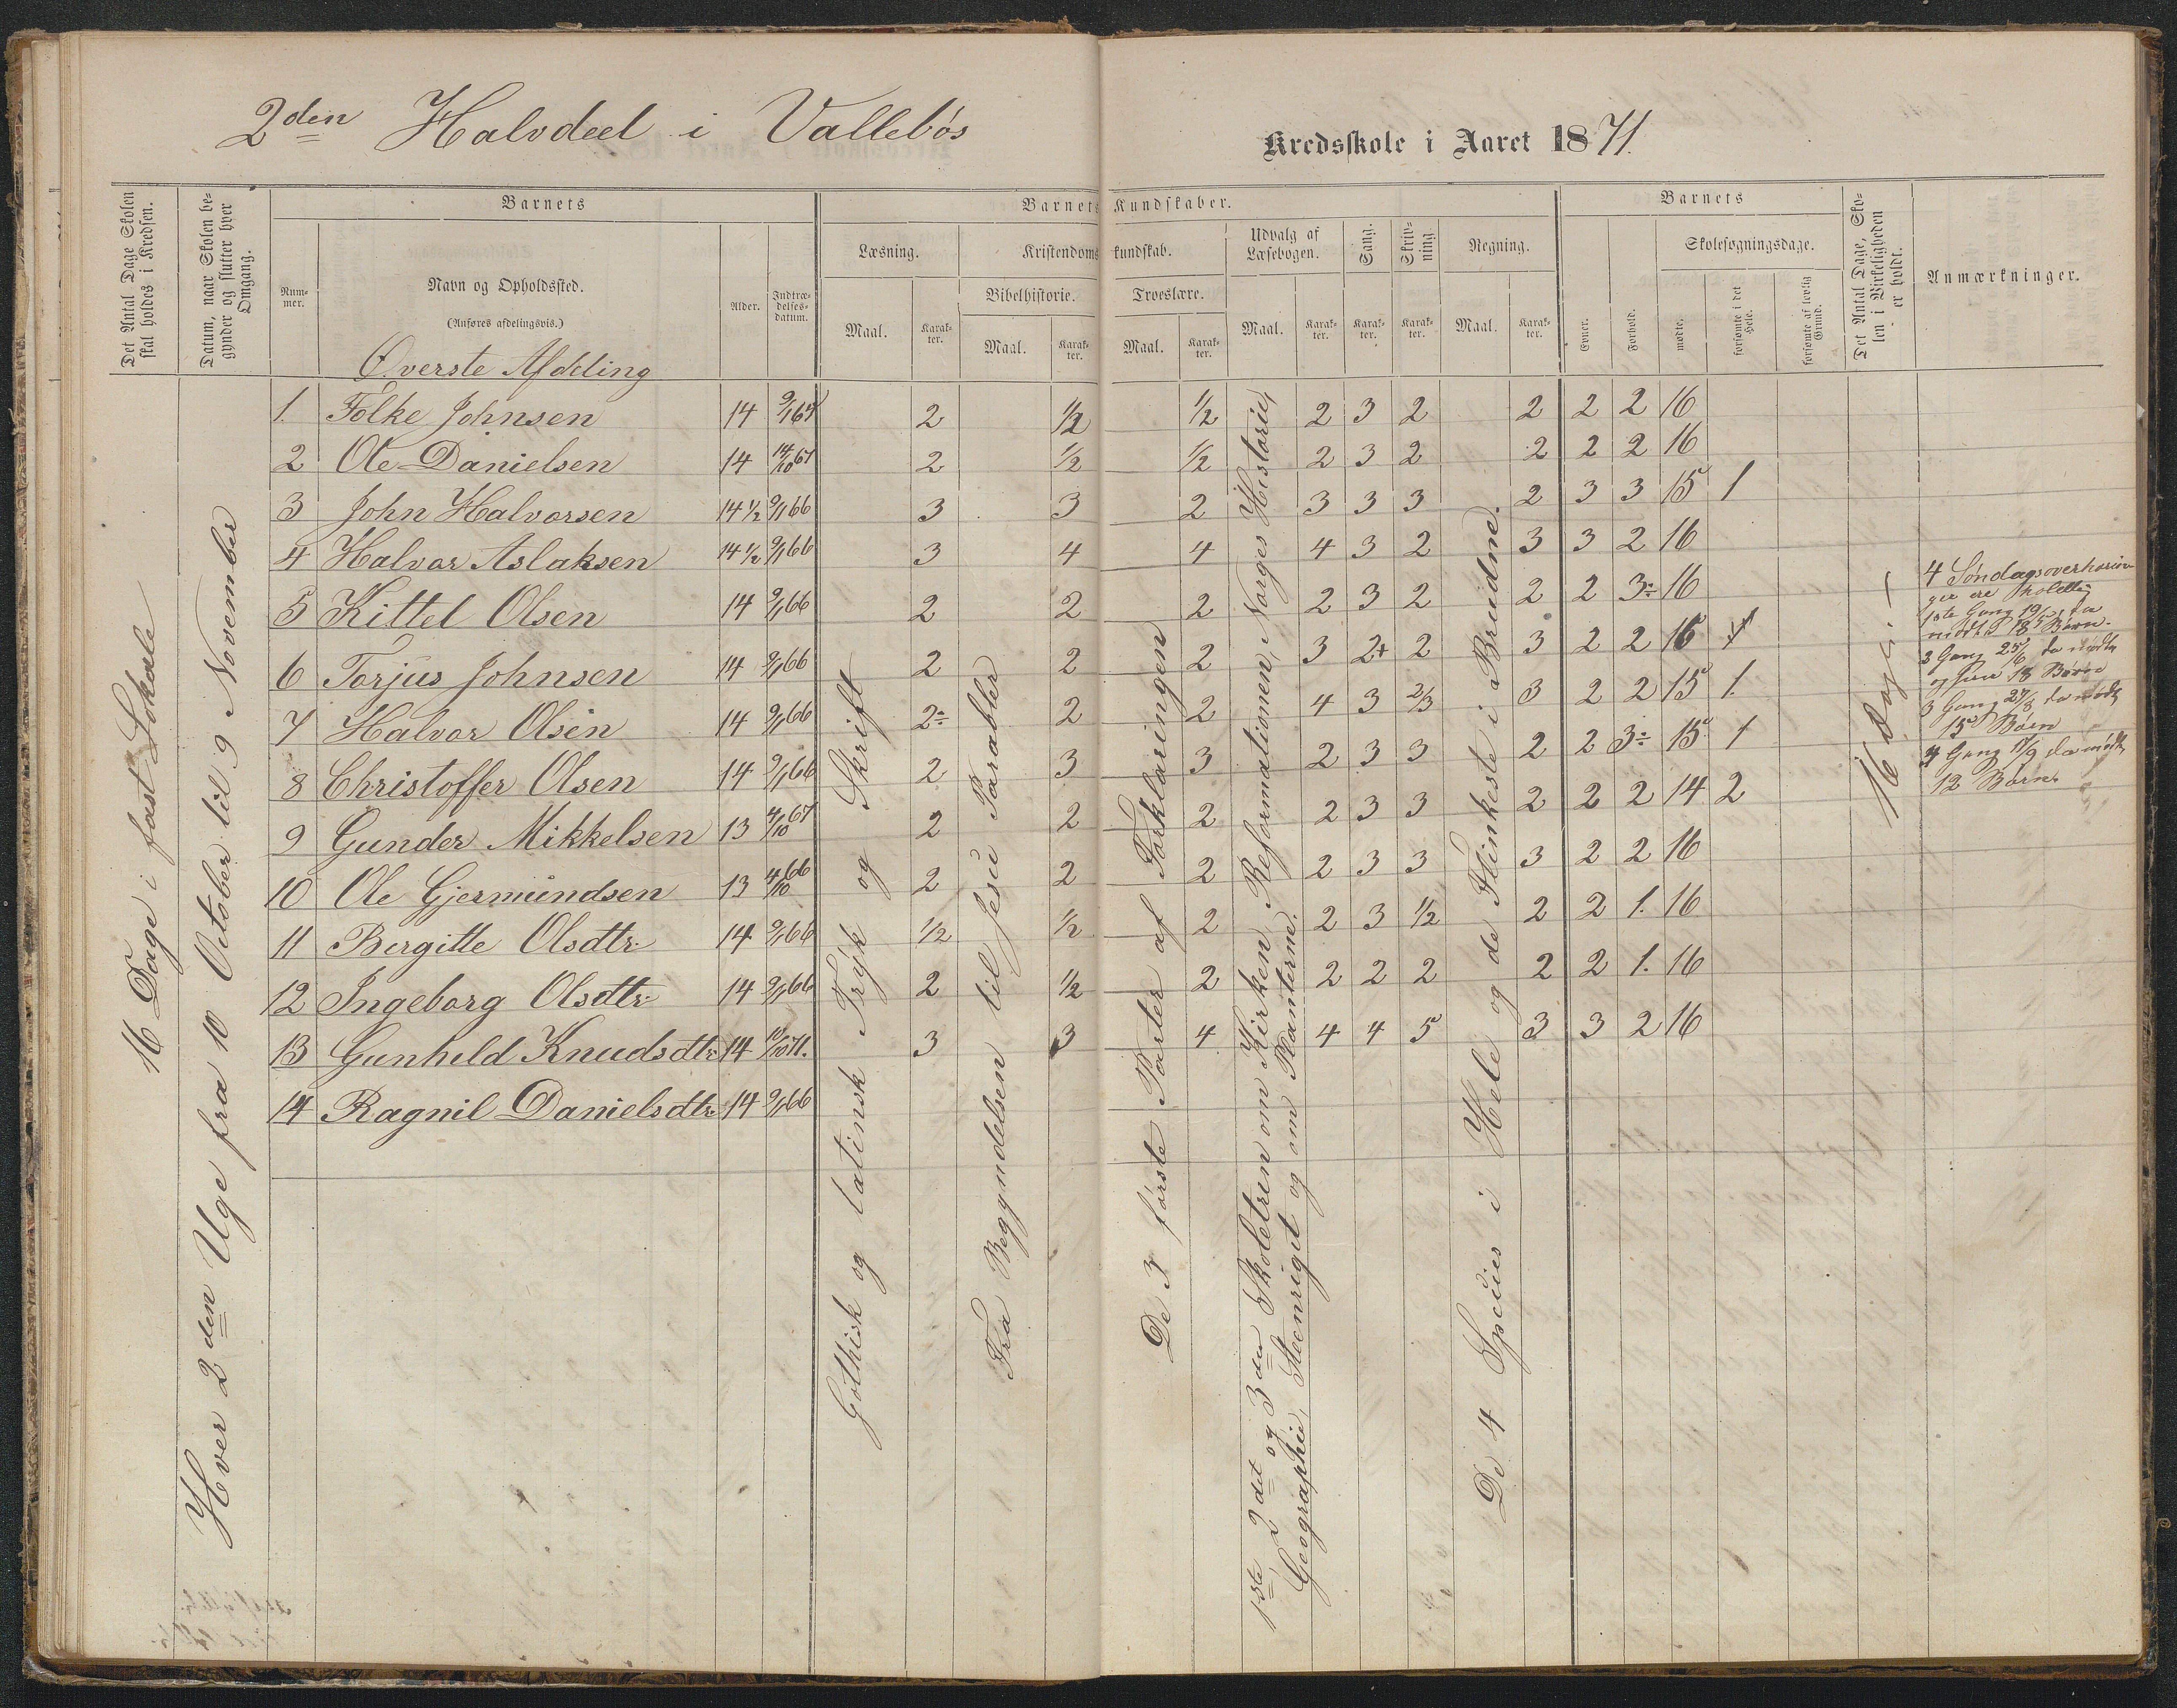 2den Halvdeel i Vallebøs
Kredsskole i Aaret 1871.
Det Antal Dage Skolen skal holdes i Kredsen.
Datum, naar Skolen begynder og slutter hver Omgang.
Barnets
Nummer.
Navn og Opholdssted.
(Anføres afdelingsvis.)
Alder.
Indtrædelsesdatum.
Barnets Kundskaber.
Læsning.
Maal.
Karakter.
Kristendomskundskab.
Bibelhistorie.
Maal.
Karakter.
Troeslære.
Maal.
Karakter.
Udvalg af Læsebogen.
Maal.
Karakter.
Sang.
Karakter.
Skrivning.
Karakter.
Regning.
Maal.
Karakter.
Barnets
Evner.
Forhold.
Skolesøgningsdage.
mødte.
forsømte i det Hele.
forsømte af lovlig Grund.
Det Antal Dage, Skolen i Virkeligheden er holdt.
Anmærkninger.
Øverste Afdeling
1. Folke Johnsen 14 2 1/2 1/2 2 3 2 2 2 2 16
2 Ole Danielsen 14 14/10 67 2 1/2 1/2 2 3 2 2 2 2 16
3 John Halvorsen 14 1/2 9/1 66 3 3 2 3 3 3 2 3 3 15 1
4 Halvor Aslaksen 14 1/2 9/1 66 3 4 4 4 3 2 3 3 2 16
5 Kittel Olsen 14 9/1 66 2 2 2 2 3 2 2 2 3÷ 16
6 Torjus Johnsen 14 9/1 66 2 2 2 3 2+ 2 3 2 2 16
7 Halvor Olsen 14 9/1 66 2÷ 2 2 4 3 2/3 3 2 2 15 1.
8 Christoffer Olsen 14 9/1 66 2 3 3 2 3 3 2 2 3÷ 15 1
9 Gunder Mikkelsen 13 4/10 67 2 2 2 2 3 3 2 2 2 14 2
10 Ole Gjermundsen 13 4/10 66 2 2 2 2 3 3 3 2 2 16
11 Bergitte Olsdtr. 14 9/1 66 1/2 1/2 2 2 3 1/2 2 2 1. 16
12 Ingeborg Olsdtr. 14 9/1 66 2 1/2 2 2 2 2 2 2 1. 16
13 Gunhild Knudsdtr. 14 10/10 71. 3 3 4 4 4 5 3 3 2 16
14 Ragnil Danielsdtr. 14 9/1 66
16 Dage i fast Lokale
Hver 2den Uge fra 10 October til 9 November
Gothisk og latinsk Tryk og Skrift
Fra Begyndelsen til Jesu Parabler
De 3 første Parter af Forklaringen
1ste 2det og 3die Skoletrin om Kirken, Reformationen, Norges Historie,
Geographie, Steenriget og om Planterne.
De 4 Species i Hele og de Flinkeste i Brudne.
16 Dage
4 Søndagsoverhørin
ger ere
1ste Gang 19/ da
mødte 18 Børn.
2 Gang 25/6 da mødte
og 18 Børn
3 Gang 27/8 da mødte
15 Børn
4 Gang 17/9 da mødte
12 Børn